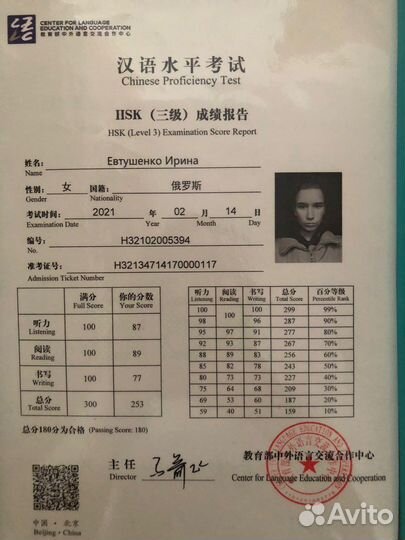 CENTER FOR LANGUAGE
EDUCATION AND COOPERATION
教育部中外语言交流合作中心
汉语水平考试
Chinese Proficiency Test
HSK（三级）成绩报告
HSK (Level 3) Examination Score Report
姓名： Евтушенко Ирина
Name
性别： 女 国籍： 俄罗斯
Gender Nationality
考试时间： 2021 年 02 月 14 日
Examination Date Year Month Day
编号： H32102005394
No.
准考证号： H32134714170000117
Admission Ticket Number
满分 你的分数
Full Score Your Score
听力 100 87
Listening
阅读 100 89
Reading
书写 100 77
Writing
总分 300 253
Total Score
总分180分为合格 (Passing Score: 180)
听力 阅读 书写 总分 百分等级
Listening Reading Writing Total Score Percentile Rank
100 100 100 299 99%
98 96 287 90%
95 97 91 277 80%
92 93 87 267 70%
88 89 83 256 60%
85 82 78 243 50%
80 73 73 227 40%
75 64 68 209 30%
69 53 60 187 20%
59 40 51 159 10%
主任
Director
教育部中外语言交流合作中心
Center for Language Education and Cooperation
中国·北京
Beijing·China
Avito